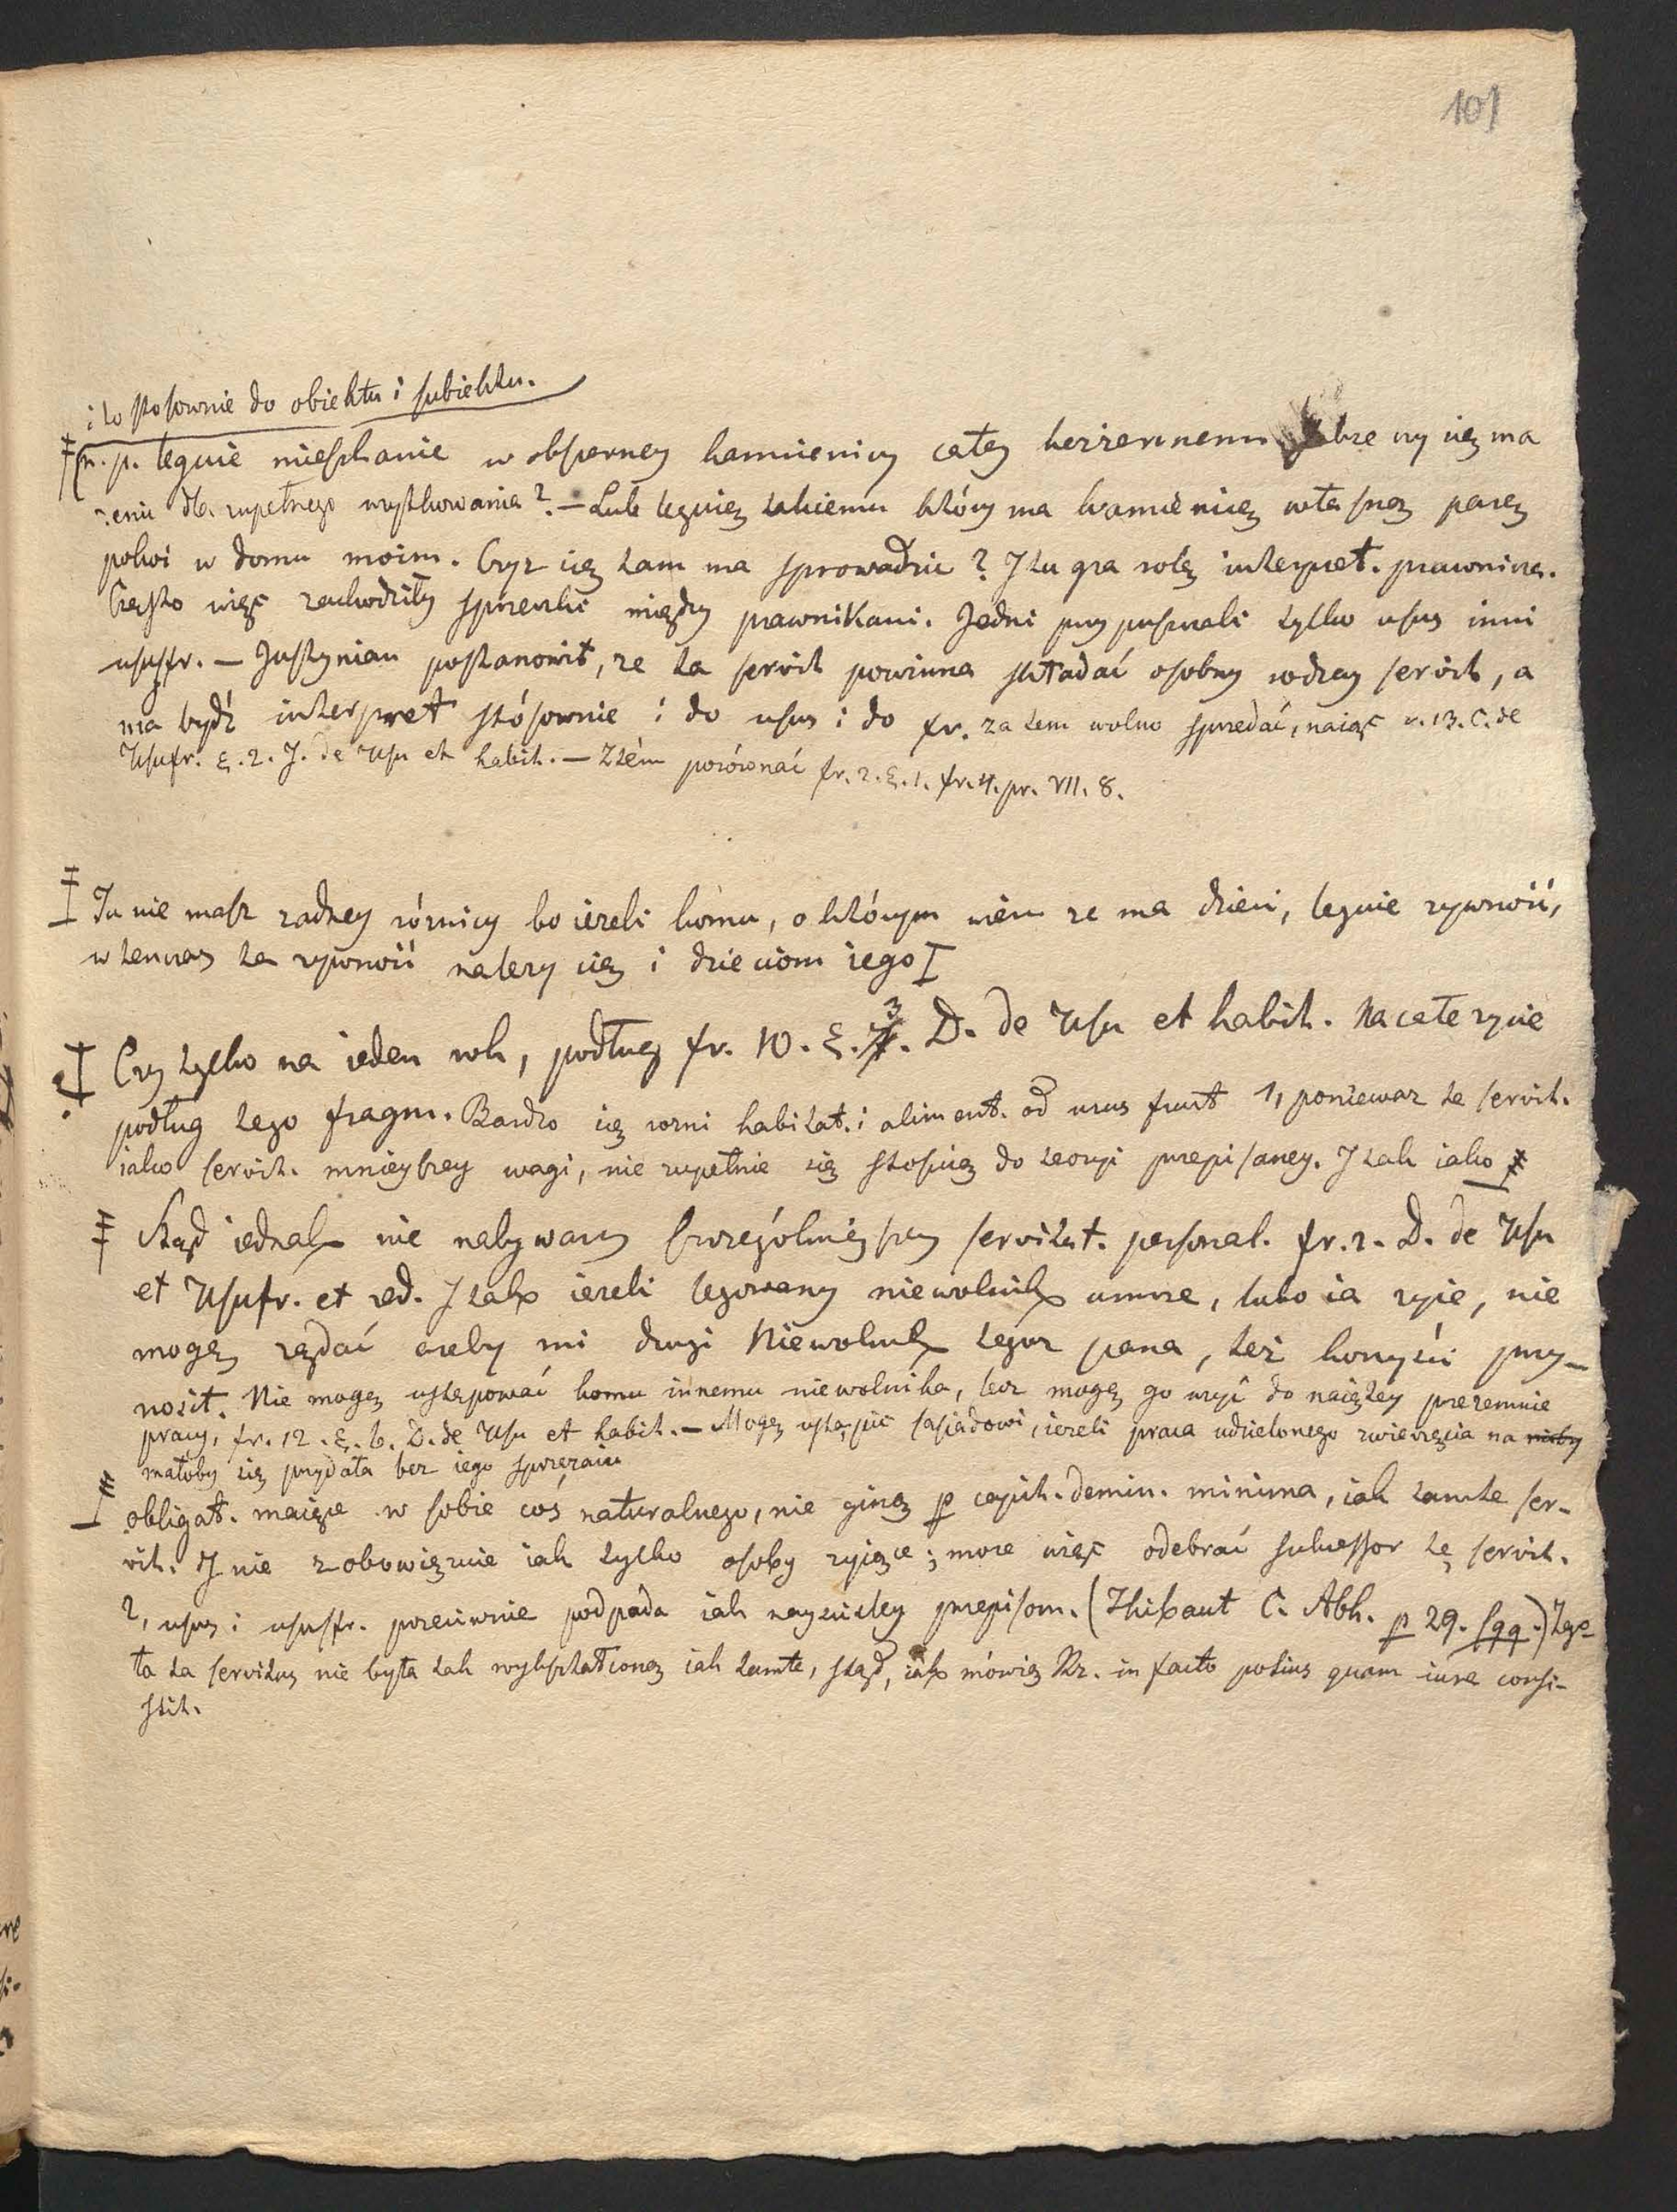 101
i to stosownie do obiektu i subiektu.
(n. p. leguie mieszkanie w obszerney kamienicy całey bezżennemu czy się ma
żenić dla zupełnego wyszukowania? – Lub leguię takiemu który ma kamienicę własną parę
pokoi w domu moim. Czyż się tam ma sprowadzić? I tu gra rolę interpret. prawnicza.
Często więc zachodziły sprzeczki między prawnikami. Jedni przypuszczali tylko usus inni
ususfr. – Justynian postanowił, że ta servit powinna składać osobny rodzay servit, a
ma bydź interpret stósownie i do usus i do fr. zatem wolno sprzedać, naiąć v. 13. C. de
Usufr. §. 2. J. de Usu et habit. – Ztém porównać fr. 2. §. 1. fr. 4. pr. VII. 8.
Tu nie masz żadney różnicy bo ieżeli komu, o którym wiem że ma dzieci, leguie żywność,
wtenczas ta żywność należy się i dzieciom iego
Czy tylko na ieden rok, podług fr. 10. §. 3. D. de Usu et habit. Na całe życie
podług tego fragm. Bardzo się rożni habitat. i aliment. od usus fruct 1, ponieważ te servit.
iako servit. mnieyszey wagi, nie zupełnie się stosuią do teoryi przepisaney. I tak iako
Skąd iednak nie nabywamy szczególnieyszey servitut. personal. fr. 2. D. de Usu
et Usufr. et red. I tak ieżeli legowany niewolnik umrze, lubo ia żyie, nie
mogę żądać ażeby mi drugi Niewolnik tegoż pana, też korzyści przy-
nosił. Nie mogę ustępować komu innemu niewolnika, lecz mogę go użyć do naiętey przezemnie
pracy, fr. 12. §. 6. D. de Usu et habit. – Mogę ustąpić sąsiadowi, ieżeli praca udzielonego zwierzęcia na
małoby się przydała bez iego sprzężaiu
obligat. maiące w sobie coś naturalnego, nie giną p capit. demin. minima, iak tamte ser-
vit. I nie zobowięzuie iak tylko osoby żyiące; może więc odebrać sukcessor tę servit.
2, usus i ususfr. przeciwnie podpada iak nayściśley przepisom. (Thibaut C. Abh. p 29. sqq.) Zgo
ła ta servitus nie była tak wykształconą iak tamte, stąd, iak mówią Rz. in facto potius quam iure consi-
stit.